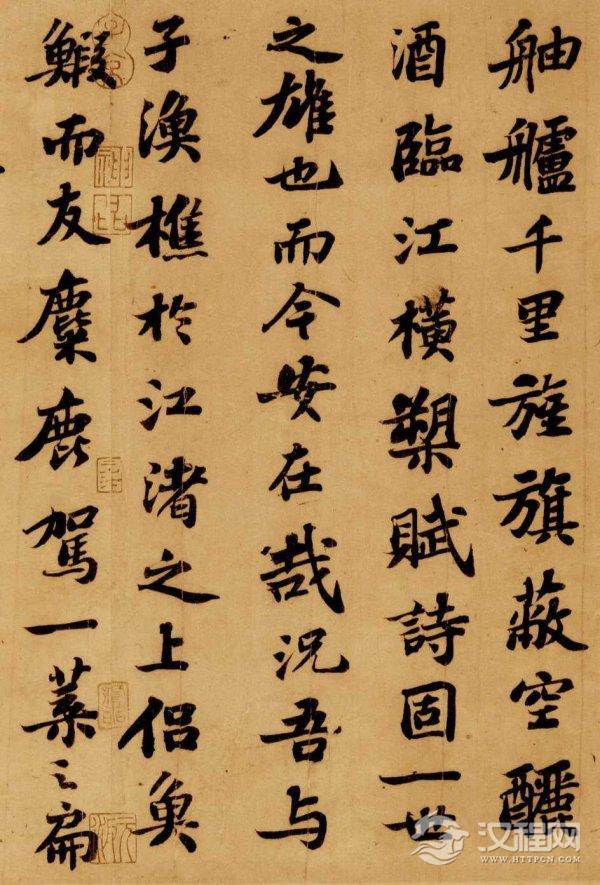 舳艫千里旌旗蔽空釃
酒臨江橫槊賦詩固一世
之雄也而今安在哉況吾与
子漁樵於江渚之上侶魚
鰕而友麋鹿駕一葉之扁
汉程网
WWW.HTTPCN.COM